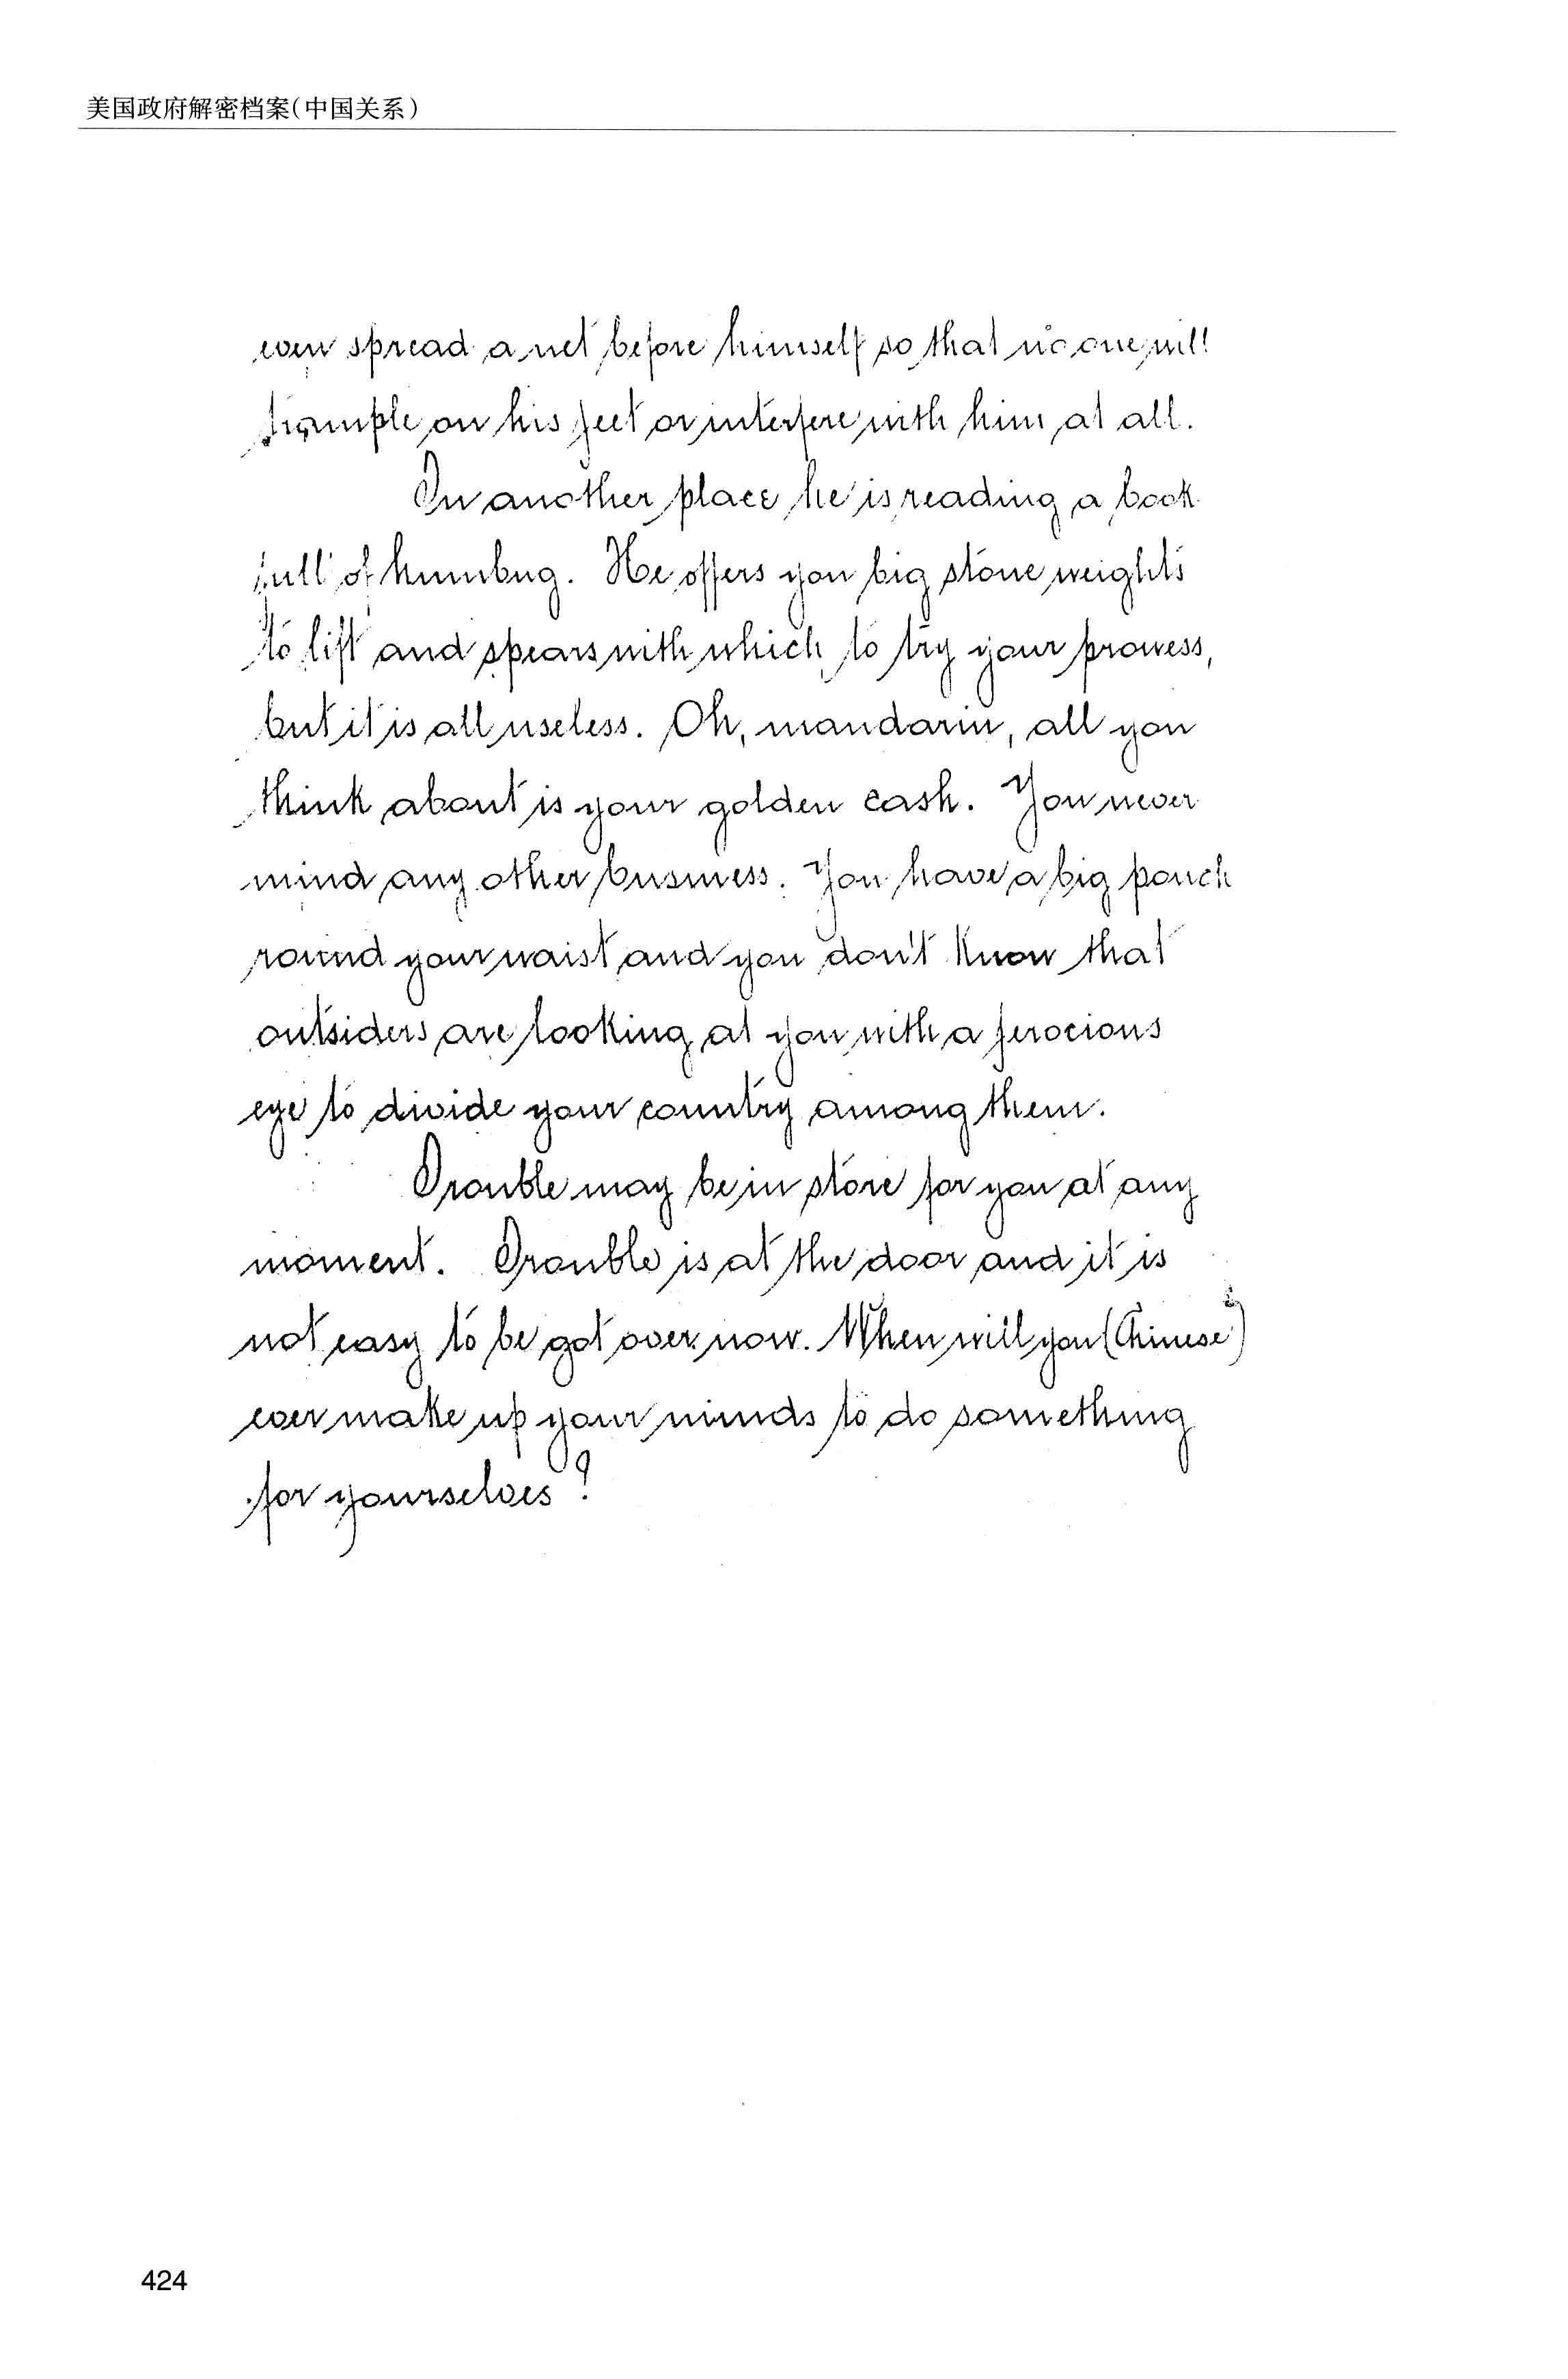 美国政府解密档案(中国关系)
even spread a net before himself so that no one will
trample on his feet or interfere with him at all.
In another place he is reading a book
full of humbug. He offers you big stone weights
to lift and spears with which to try your prowess,
but it is all useless. Oh, mandarin, all you
think about is your golden cash. You never
mind any other business. You have a big pouch
round your waist and you don't know that
outsiders are looking at you with a ferocious
eye to divide your country among them.
Trouble may be in store for you at any
moment. Trouble is at the door and it is
not easy to be got over now. When will you (Chinese)
ever make up your minds to do something
for yourselves?
424